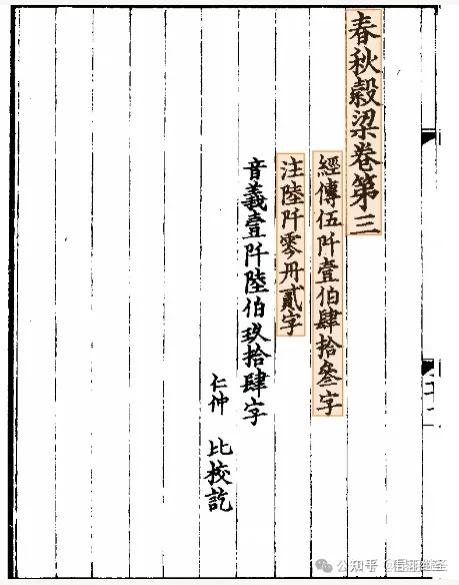 春秋穀梁卷第三
經傳伍阡壹伯肆拾叄字
注陸阡零卌貳字
音義壹阡陸伯玖拾肆字
仁仲 比校訖
公知乎